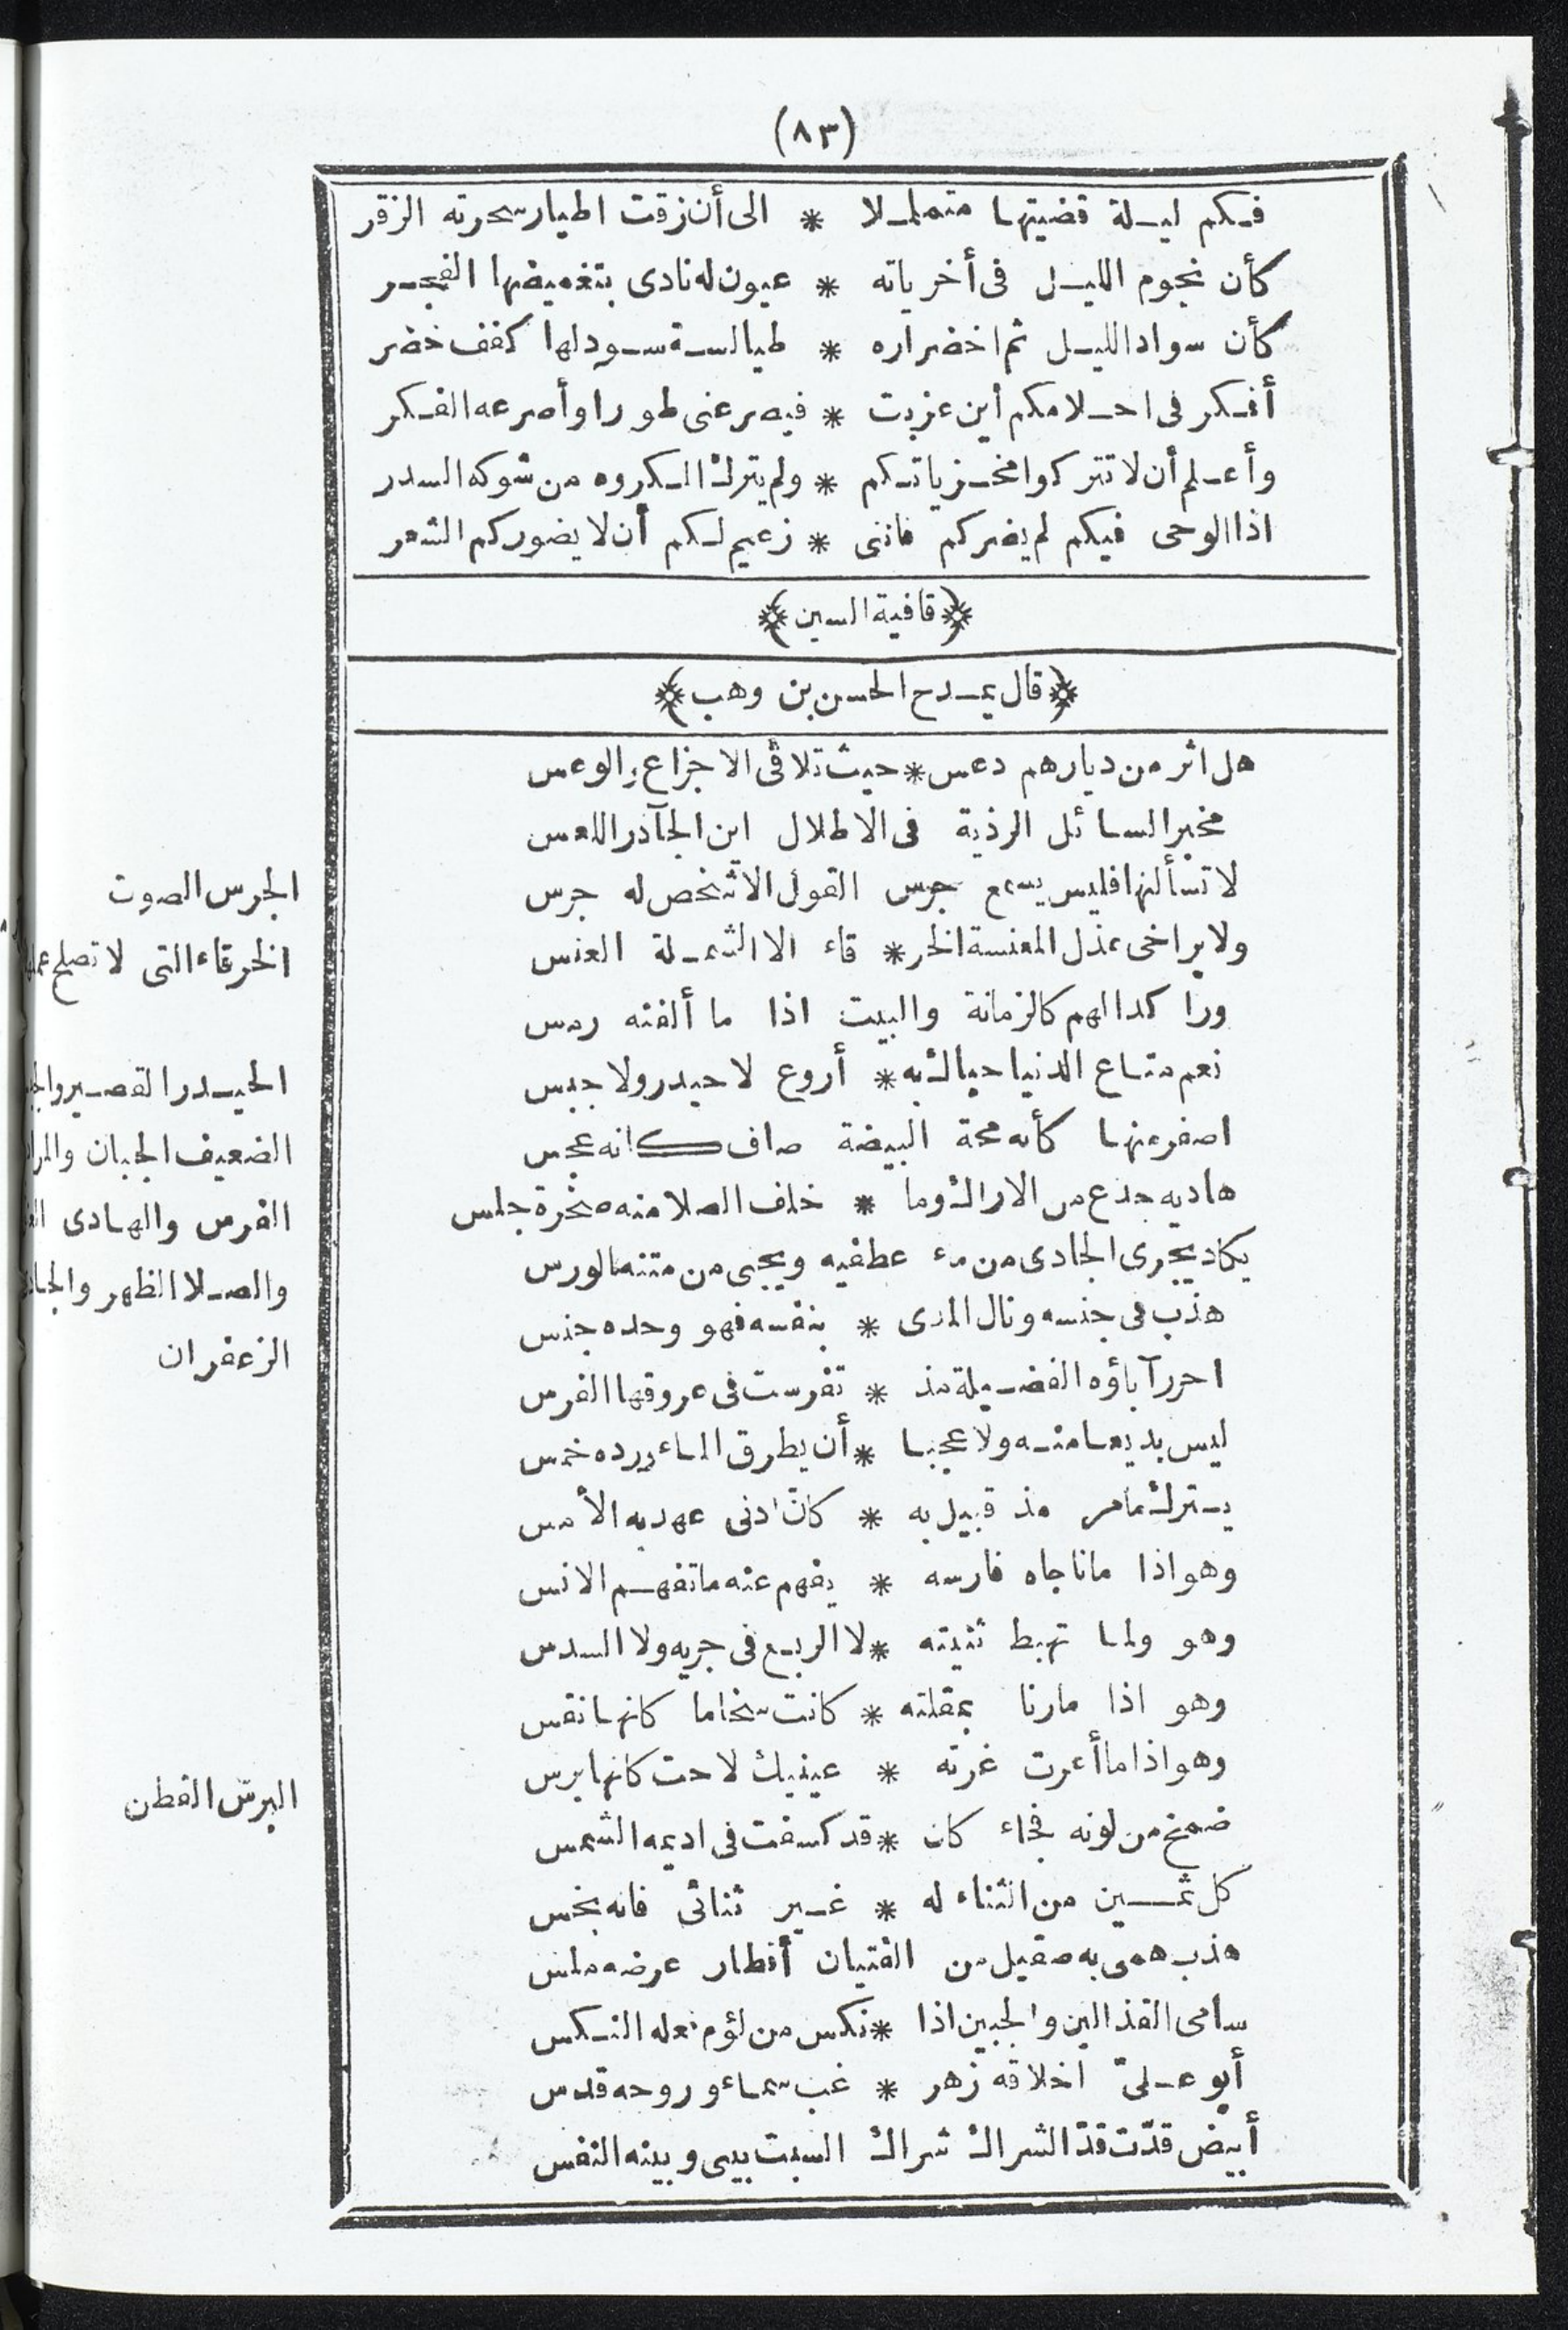 (٨٣)
فكم ليلة قضيتها متململا * الى أن زقت اطيار سحرته الزقر
كأن نجوم الليل فى أخرياته * عيون له نادى بتغميضها الفجر
كأن سواد الليل ثم اخضراره * طيالسة سود لها كفف خضر
أفكر فى احلامكم أين عزبت * فيصرعنى طورا وأصرعه الفكر
وأعلم أن لا تتركوا مخزياتكم * ولم يترك المكروه من شوكه السدر
اذا الوحى فيكم لم يضركم فاننى * زعيم لكم أن لا يضوركم الشعر
﴿قافية السين﴾
﴿قال يمدح الحسن بن وهب﴾
هل اثر من ديارهم دعس * حيث تلاقى الاجزاع والوعس
مخبر السائل الرذية فى الاطلال اين الجآذر اللعس
لا تسألنها فليس يسمع جرس القول الا شخص له جرس
ولا يراخى عذل المعنسة الخر * قاء الا الشملة العنس
وراكد الهم كالزمانة والبيت اذا ما ألفته رمس
نعم متاع الدنيا حباك به * أروع لا حيدر ولا جبس
اصفر منها كأنه محة البيضة صاف كانه عجس
هاديه جذع من الاراك وما * خلف الصلا منه صخرة جلس
يكاد يجرى الجادى من ماء عطفيه ويجبى من متنه الورس
هذب فى جنسه ونال المدى * بنفسه فهو وحده جنس
احرز آباؤه الفضيلة مذ * تفرست فى عروقها الفرس
ليس بديعا منه ولا عجبا * أن يطرق الماء ورده خمس
يترك مامر مذ قبيل به * كان ادنى عهد به الأمس
وهو اذا ما ناجاه فارسه * يفهم عنه ما تفهم الانس
وهو ولما تهبط ثنيته * لا الربع فى جريه ولا السدس
وهو اذا مارنا بمقلته * كانت سخاما كانها نقس
وهو اذا ما أعرت غرته * عينيك لاحت كانها برس
ضمخ من لونه فجاء كان * قد كسفت فى اديمه الشمس
كل ثمين من الثناء له * غير ثنائى فانه بخس
هذب همى به صقيل من الفتيان أقطار عرضه ملس
سامى القذالين والجبين اذا * نكس من لؤم فعله النكس
أبو علىّ اخلاقه زهر * غب سماء وروحه قدس
أبيض قدّت قدّ الشراك شراك السبت بينى وبينه النفس
الجرس الصوت
الخرقاء التى لا تصلح
الحيدر القصير
الضعيف الجبان
الفرس والهادى
والصلا الظهر
الزعفران
البرس القطن